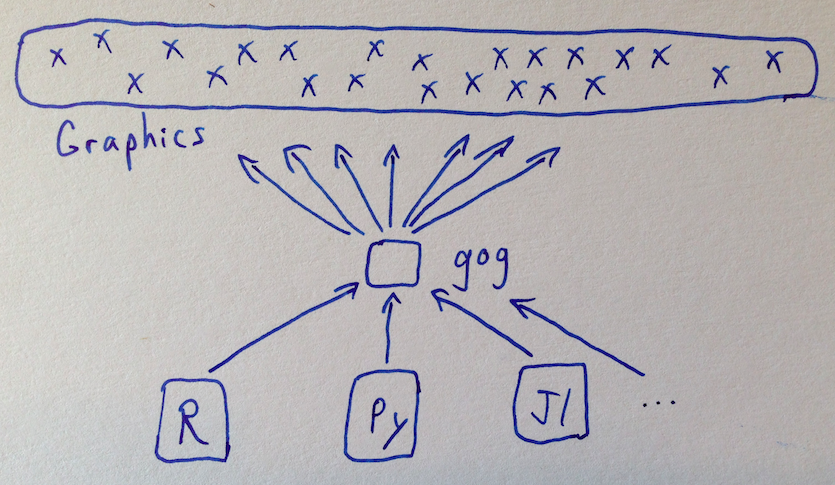 x x x x x x x x x x x x x x x x x x x x x x x x
Graphics
gog
R Py Jl ...